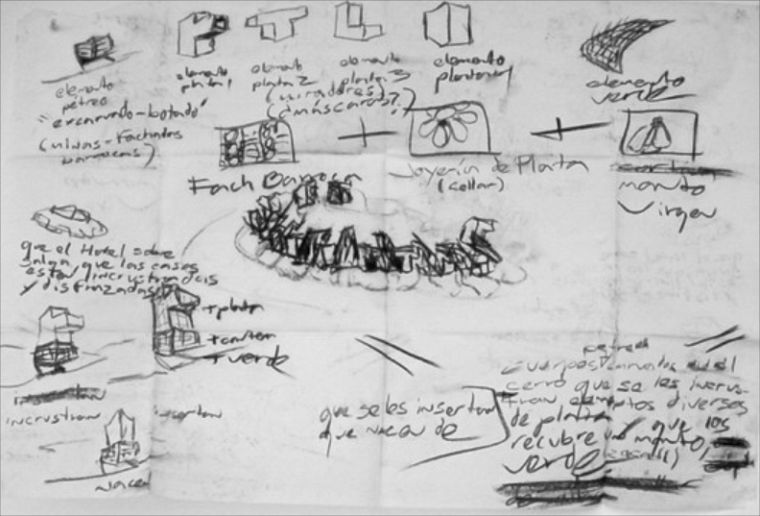 elemento
petreo
"excarvado-botado"
(minas-Fachadas
barrocas)
elemento
plata 1
elemento
plata 2
(miradores)
(¿máscaras?)
elemento
plata 3
elemento
plata 4
elemento
verde
Fach Barroca
+
Joyería de Plata
(collar)
+
manto
Virgen
que el Hotel sobre
salga, que las casas
estan incrustradas
y disfrazadas
+plata
+verde
incrustran
insertan
nacen
que se les insertan
que nacen de
petreos
cuerpos en el
cerro que se les incrus-
tran elementos diversos
de plata y que los
recubre un manto
verde